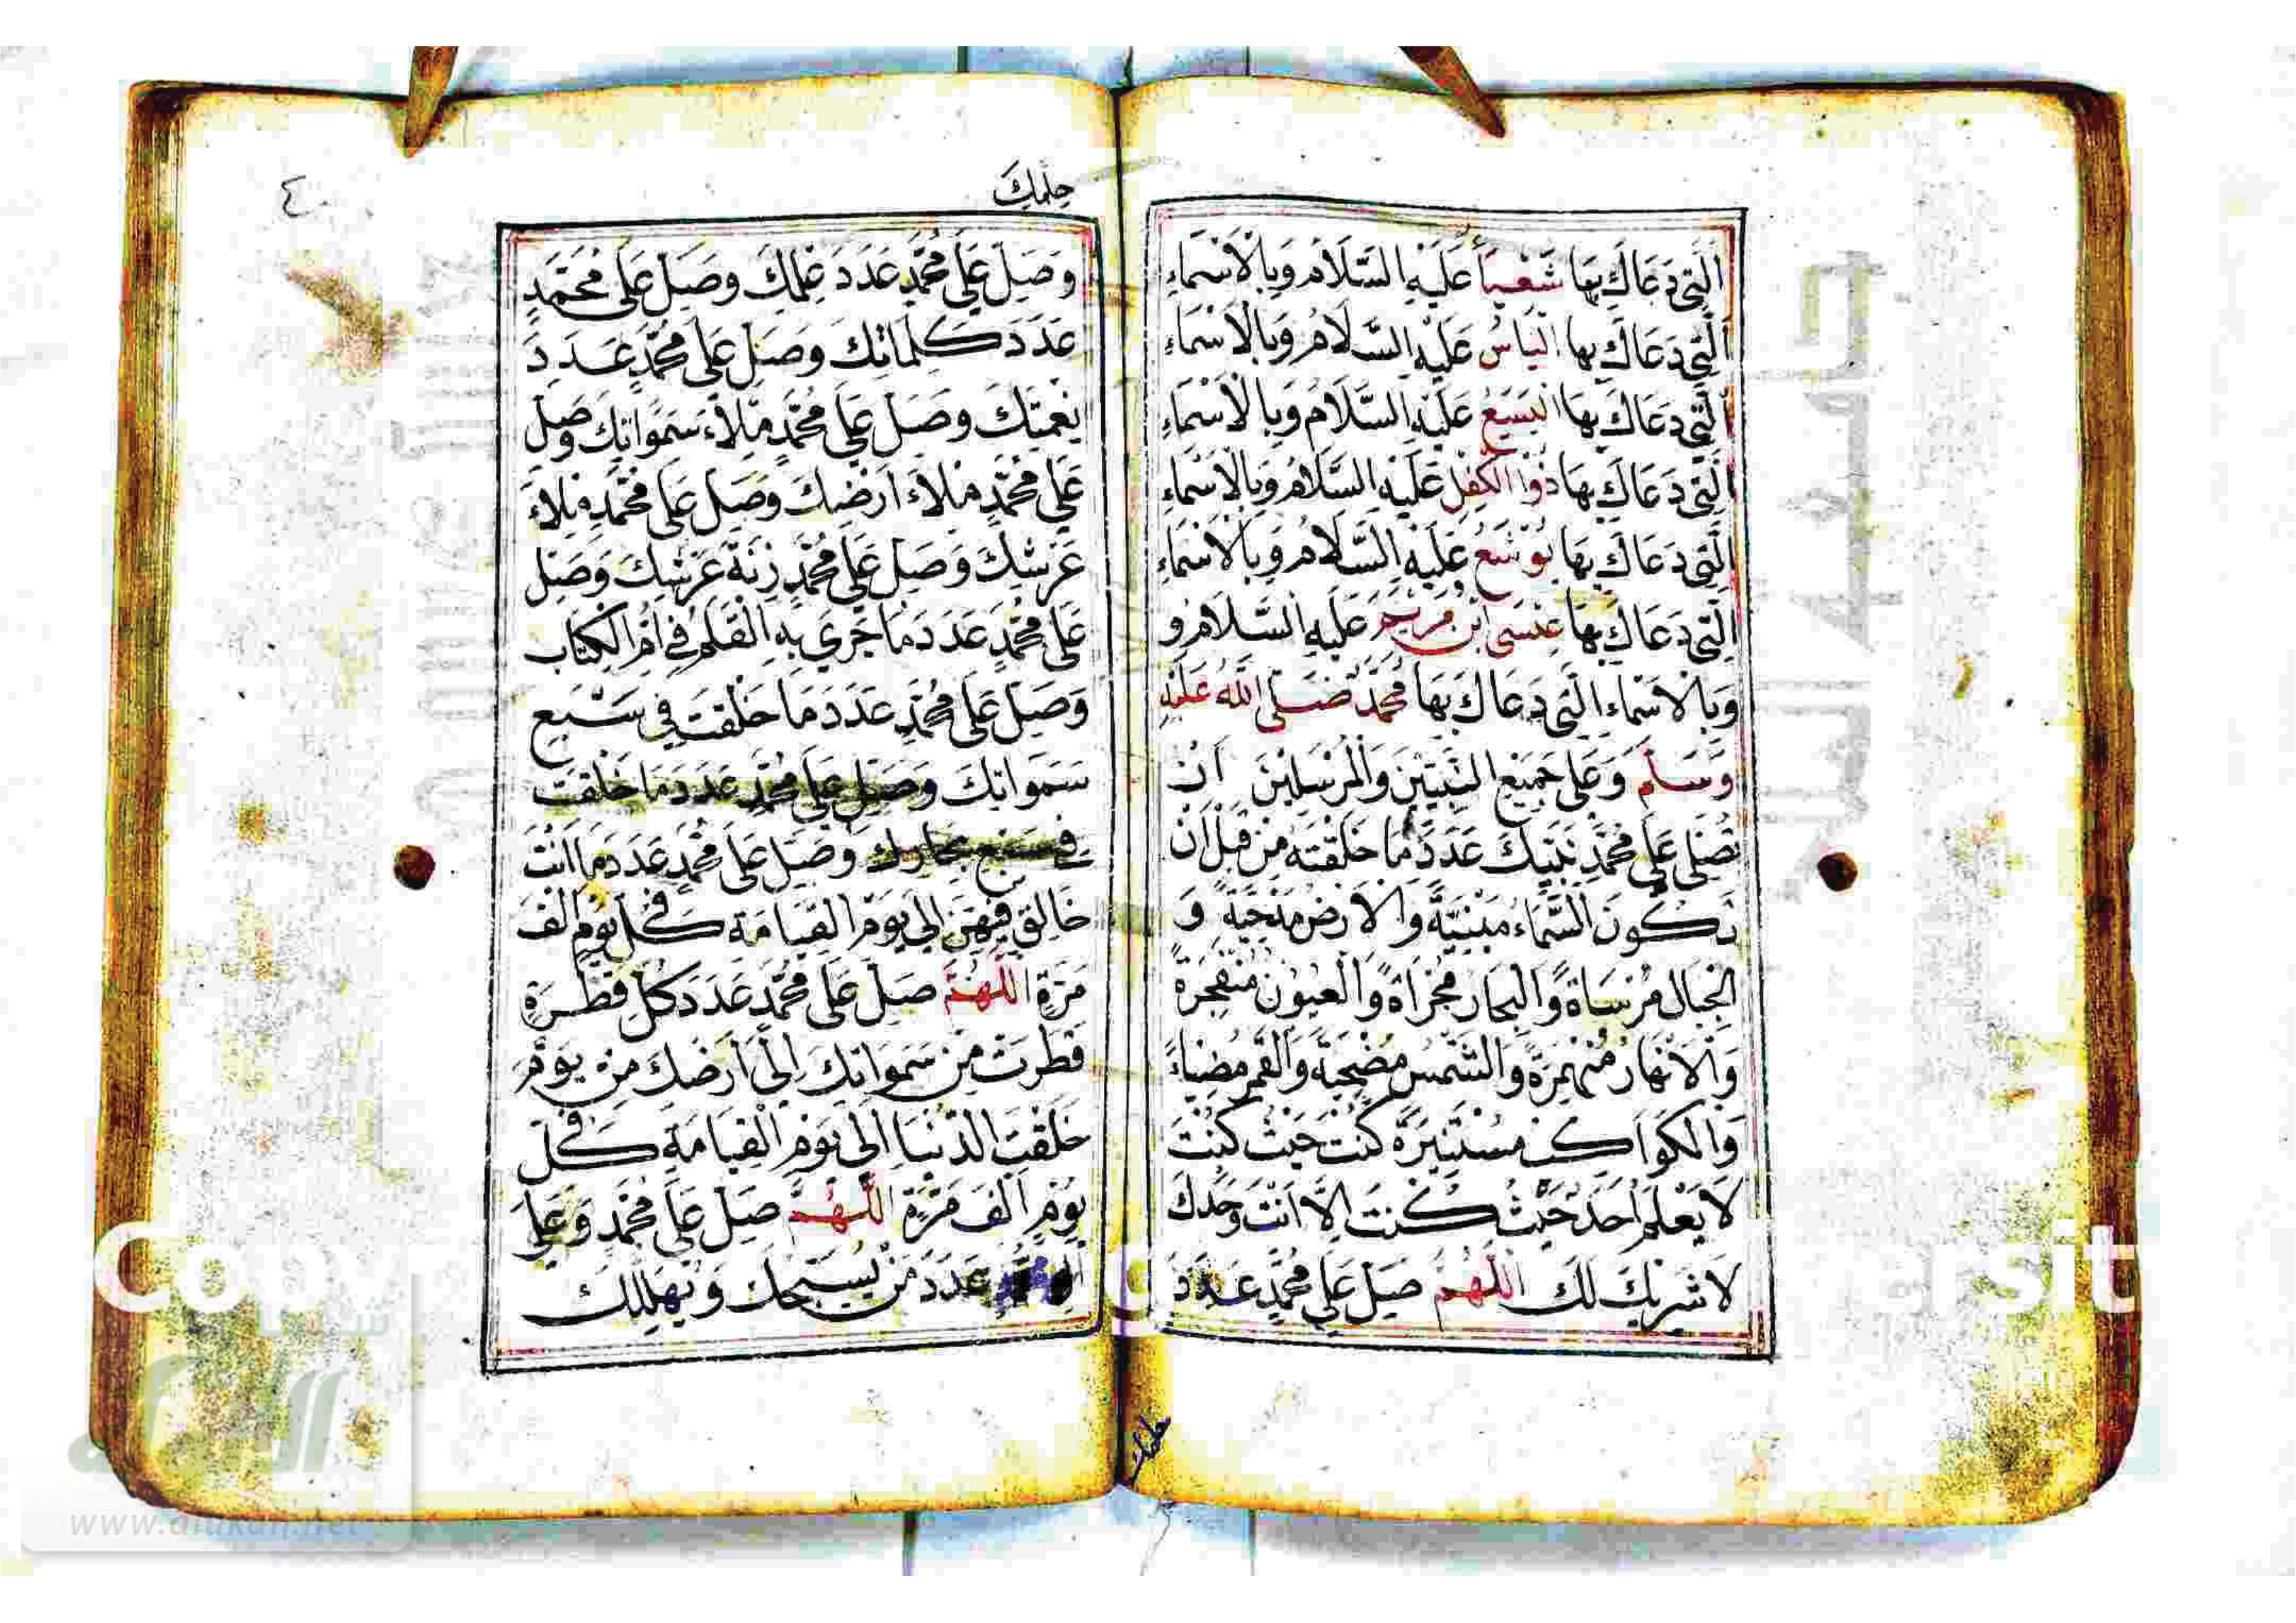 اَلَّتِي دَعَاكَ بِهَا شَعْيَاءُ عَلَيْهِ السَّلَامُ وَبِالْاَسْمَاءِ
اَلَّتِي دَعَاكَ بِهَا اِلْيَاسُ عَلَيْهِ السَّلَامُ وَبِالْاَسْمَاءِ
اَلَّتِي دَعَاكَ بِهَا الْيَسَعُ عَلَيْهِ السَّلَامُ وَبِالْاَسْمَاءِ
اَلَّتِي دَعَاكَ بِهَا ذُوا الْكِفْلِ عَلَيْهِ السَّلَامُ وَبِالْاَسْمَاءِ
اَلَّتِي دَعَاكَ بِهَا يُوْشَعُ عَلَيْهِ السَّلَامُ وَبِالْاَسْمَاءِ
اَلَّتِي دَعَاكَ بِهَا عِيْسَى ابْنُ مَرْيَمَ عَلَيْهِ السَّلَامُ وَ
وَبِالْاَسْمَاءِ الَّتِي دَعَاكَ بِهَا مُحَمَّدٌ صَلَّى اللّٰهُ عَلَيْهِ
وَسَلَّمَ وَعَلَى جَمِيْعِ النَّبِيِّيْنَ وَالْمُرْسَلِيْنَ اَنْ
تُصَلِّيَ عَلَى مُحَمَّدٍ نَبِيِّكَ عَدَدَ مَا خَلَقْتَهُ مِنْ قَبْلِ اَنْ
تَكُوْنَ السَّمَاءُ مَبْنِيَّةً وَالْاَرْضُ مَدْحِيَّةً وَ
الْجِبَالُ مُرْسَاةً وَالْبِحَارُ مُجْرَاةً وَالْعُيُوْنُ مُنْفَجِرَةً
وَالْاَنْهَارُ مُنْهَمِرَةً وَالشَّمْسُ مُضْحِيَةً وَالْقَمَرُ مُضِيْاءً
وَالْكَوَاكِبُ مُسْتَنِيْرَةً كُنْتَ حَيْثُ كُنْتَ
لَا يَعْلَمُ اَحَدٌ حَيْثُ كُنْتَ اِلَّا اَنْتَ وَحْدَكَ
لَا شَرِيْكَ لَكَ اَللّٰهُمَّ صَلِّ عَلَى مُحَمَّدٍ عَدَدَ
حلمك
حِلْمِكَ
٤
وَصَلِّ عَلَى مُحَمَّدٍ عَدَدَ عِلْمِكَ وَصَلِّ عَلَى مُحَمَّدٍ
عَدَدَ كَلِمَاتِكَ وَصَلِّ عَلَى مُحَمَّدٍ عَدَدَ
نِعْمَتِكَ وَصَلِّ عَلَى مُحَمَّدٍ مِلَاءَ سَمَوَاتِكَ وَصَلِّ
عَلَى مُحَمَّدٍ مِلَاءَ اَرْضِكَ وَصَلِّ عَلَى مُحَمَّدٍ مِلَاءَ
عَرْشِكَ وَصَلِّ عَلَى مُحَمَّدٍ زِنَةَ عَرْشِكَ وَصَلِّ
عَلَى مُحَمَّدٍ عَدَدَ مَا جَرَى بِهِ الْقَلَمُ فِي اُمِّ الْكِتَابِ
وَصَلِّ عَلَى مُحَمَّدٍ عَدَدَ مَا خَلَقْتَ فِي سَبْعِ
سَمَوَاتِكَ وَصَلِّ عَلَى مُحَمَّدٍ عَدَدَ مَا خَلَقْتَ
فِي سَبْعِ بِحَارِكَ وَصَلِّ عَلَى مُحَمَّدٍ عَدَدَ مَا اَنْتَ
خَالِقٌ فِيْهِنَّ اِلَى يَوْمِ الْقِيَامَةِ فِي كُلِّ يَوْمٍ اَلْفَ
مَرَّةٍ اَللّٰهُمَّ صَلِّ عَلَى مُحَمَّدٍ عَدَدَ كُلِّ قَطْرَةٍ
قَطَرَتْ مِنْ سَمَوَاتِكَ اِلَى اَرْضِكَ مِنْ يَوْمِ
خَلَقْتَ الدُّنْيَا اِلَى يَوْمِ الْقِيَامَةِ فِي كُلِّ
يَوْمٍ اَلْفَ مَرَّةٍ اَللّٰهُمَّ صَلِّ عَلَى مُحَمَّدٍ وَعَلَى
عَدَدَ مَنْ يُسَبِّحُكَ وَيُهَلِّلُكَ
www.alukah.net